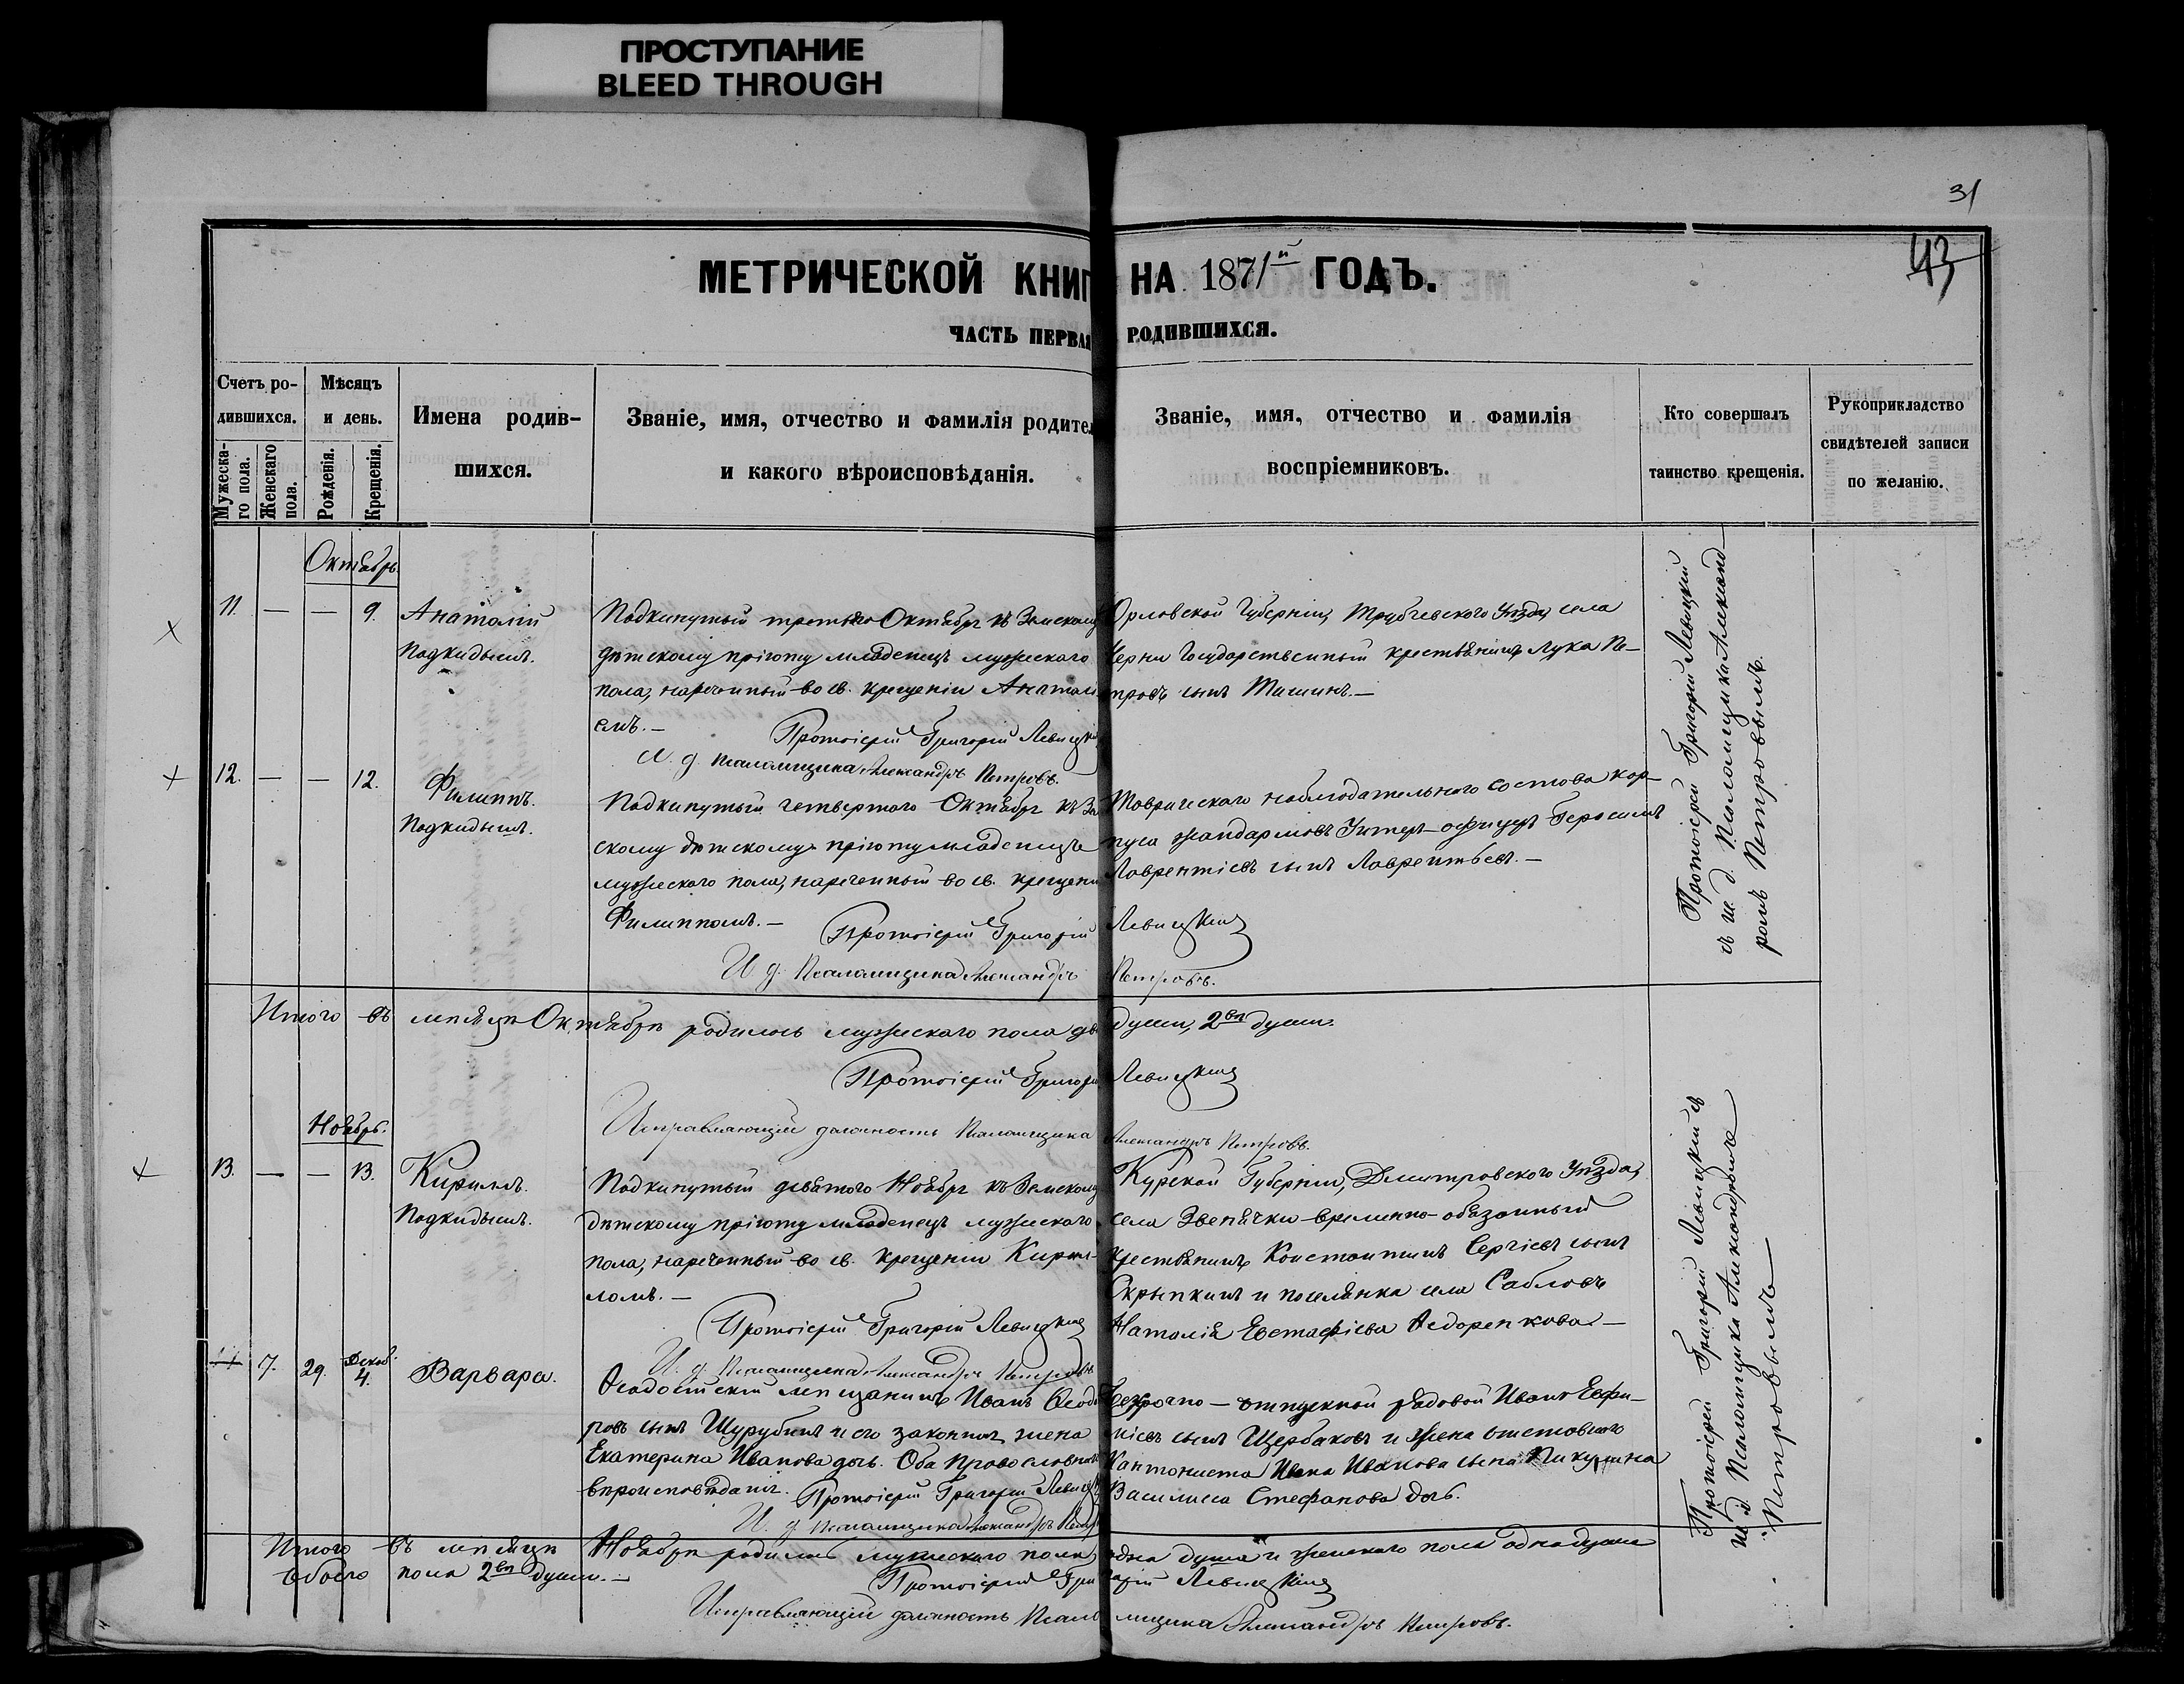 ПРОСТУПАНИЕ
BLEED THROUGH
31
43
МЕТРИЧЕСКОЙ КНИГ НА 1871й ГОДЪ.
ЧАСТЬ ПЕРВАЯ РОДИВШИХСЯ.
Счетъ ро-
дившихся.
Мужеска-
го пола.
Женскаго
пола.
Мѣсяцъ
и день.
Рожденія.
Крещенія.
Имена родив-
шихся.
Званіе, имя, отчество и фамилія родител
и какого вѣроисповѣданія.
Званіе, имя, отчество и фамилія
воспріемниковъ.
Кто совершалъ
таинство крещенія.
Рукоприкладство
свидѣтелей записи
по желанію.
Октябрь
11. — — 9.
Анатолій
Подкидышъ.
Подкинутый третьяго Октября къ Земскому
дѣтскому пріюту младенецъ мужескаго
пола, нареченный во св. крещеніи Анатолі
емъ. —
Протоіерей Григорій Левицкій
И. д. Псаломщика Александръ Петровъ.
Орловской Губерніи, Трубчевского Уѣзда, села
Черни Государственный крестьянинъ Лука Пе-
тровъ сынъ Тишинъ. —
12. — — 12.
Филиппъ.
Подкидышъ.
Подкинутый четвертаго Октября къ Зем
скому дѣтскому пріюту младенецъ
мужескаго пола, нареченный во св. крещени
Филиппомъ. —
Протоіерей Григорій Левицкій
И. д. Псаломщика Александръ Петровъ.
Таврическаго наблюдательного состава кор-
пуса жандармовъ Унтеръ-офицеръ Герасимъ
Лаврентіевъ сынъ Лаврентьевъ. —
Протоіерей Григорій Левицкій
съ и. д. Псаломщика Александ-
ромъ Петровымъ.
Итого въ мѣсяцѣ Октябрѣ родилось мужескаго пола двѣ души, 2вѣ души.
Протоіерей Григорій Левицкій
Исправляющій должность Псаломщика Александръ Петровъ.
Ноябрь.
13. — — 13.
Кириллъ.
Подкидышъ.
Подкинутый девятого Ноября къ Земскому
дѣтскому пріюту младенецъ мужескаго
пола, нареченный во св. крещеніи Кирил-
ломъ. —
Протоіерей Григорій Левицкій
И. д. Псаломщика Александръ Петровъ
Курской Губерніи, Дмитровского Уѣзда,
села Звенячки временно-обязанный
крестьянинъ Константинъ Сергіевъ сынъ
Скрыпкинъ и поселянка села Сабловъ
Наталія Евстафіева Ѳедоренкова —
7. 29. Декаб. 4.
Варвара.
Ѳеодосійскій мещанинъ Иванъ Ѳеодо
ровъ сынъ Шурубинъ и его законная жена
Екатерина Иванова дочь. Оба православнаго
вѣроисповѣданія.
Протоіерей Григорій Левицкій
И. д. Псаломщика Александръ Петро
Безсрочно-отпускной рядовой Иванъ Евфи-
міевъ сынъ Щербаковъ и жена отставного
Кантониста Ивана Иванова сына Пикулина
Василиса Стефанова дочь.
Протоіерей Григорій Левицкій съ
и. д. Псаломщика Александромъ
Петровымъ —
Итого въ мѣсяцѣ Ноябрѣ родилось мужескаго пола одна душа и женскаго пола одна душа
Обоего пола 2вѣ души. —
Протоіерей Григорій Левицкій
Исправляющій должность Псаломщика Александръ Петровъ.